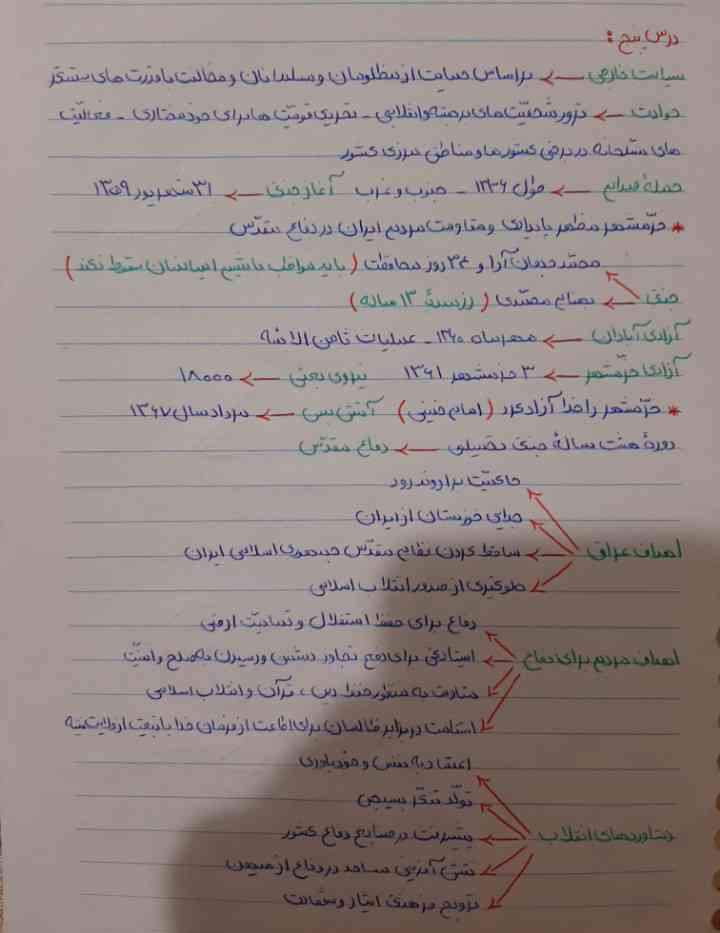 درس پنج :
سیاست خارجی ← براساس حمایت از مظلومان و مسلمانان و مخالفت با قدرت های ستمگر
حوادث ← ترور شخصیت های برجسته انقلابی - تحریک قومیت ها برای خودمختاری - فعالیت
های مسلحانه در برخی کشورها و مناطق مرزی کشور
حمله صدام ← جنوب و غرب آغاز جنگ ← ۳۱ شهریور ۱۳۵۹
* خرّمشهر مظهر پایداری و مقاومت مردم ایران در دفاع مقدّس
محمّد جهان آرا و ۳۴ روز محافظت (باید مواظب باشیم ایمانمان سقوط نکند)
جنگ ← بهنام محمّدی (رزمندهٔ ۱۳ ساله)
آزادی آبادان ← مهرماه ۱۳۶۰ - عملیات ثامن الائمه
آزادی خرّمشهر ← ۳ خرمشهر ۱۳۶۱ نیروی بعثی ← ۱۸۰۰۰
* خرّمشهر را خدا آزاد کرد (امام خمینی) آتش بس ← مرداد سال ۱۳۶۷
دورهٔ هشت سالهٔ جنگ تحمیلی ← دفاع مقدّس
حاکمیّت بر اروند رود
جدایی خوزستان از ایران
اهداف عراق ← ساقط کردن نظام مقدّس جمهوری اسلامی ایران
جلوگیری از صدور انقلاب اسلامی
دفاع برای حفظ استقلال و تمامیّت ارضی
اهداف مردم برای دفاع ← ایستادگی برای دفع تجاوز دشمن و رسیدن به صلح و امنیّت
مقاومت به منظور حفظ دین ، قرآن و انقلاب اسلامی
استقامت در برابر ظالمان برای اطاعت از فرمان خدا با تبعیت از ولایت فقیه
اعتماد به نفس و خودباوری
تولّد تفکّر بسیجی
دستاوردهای انقلاب ← پیشرفت در صنایع دفاع کشور
نقش آفرینی مساجد در دفاع از میهن
ترویج فرهنگ ایثار و شهادت